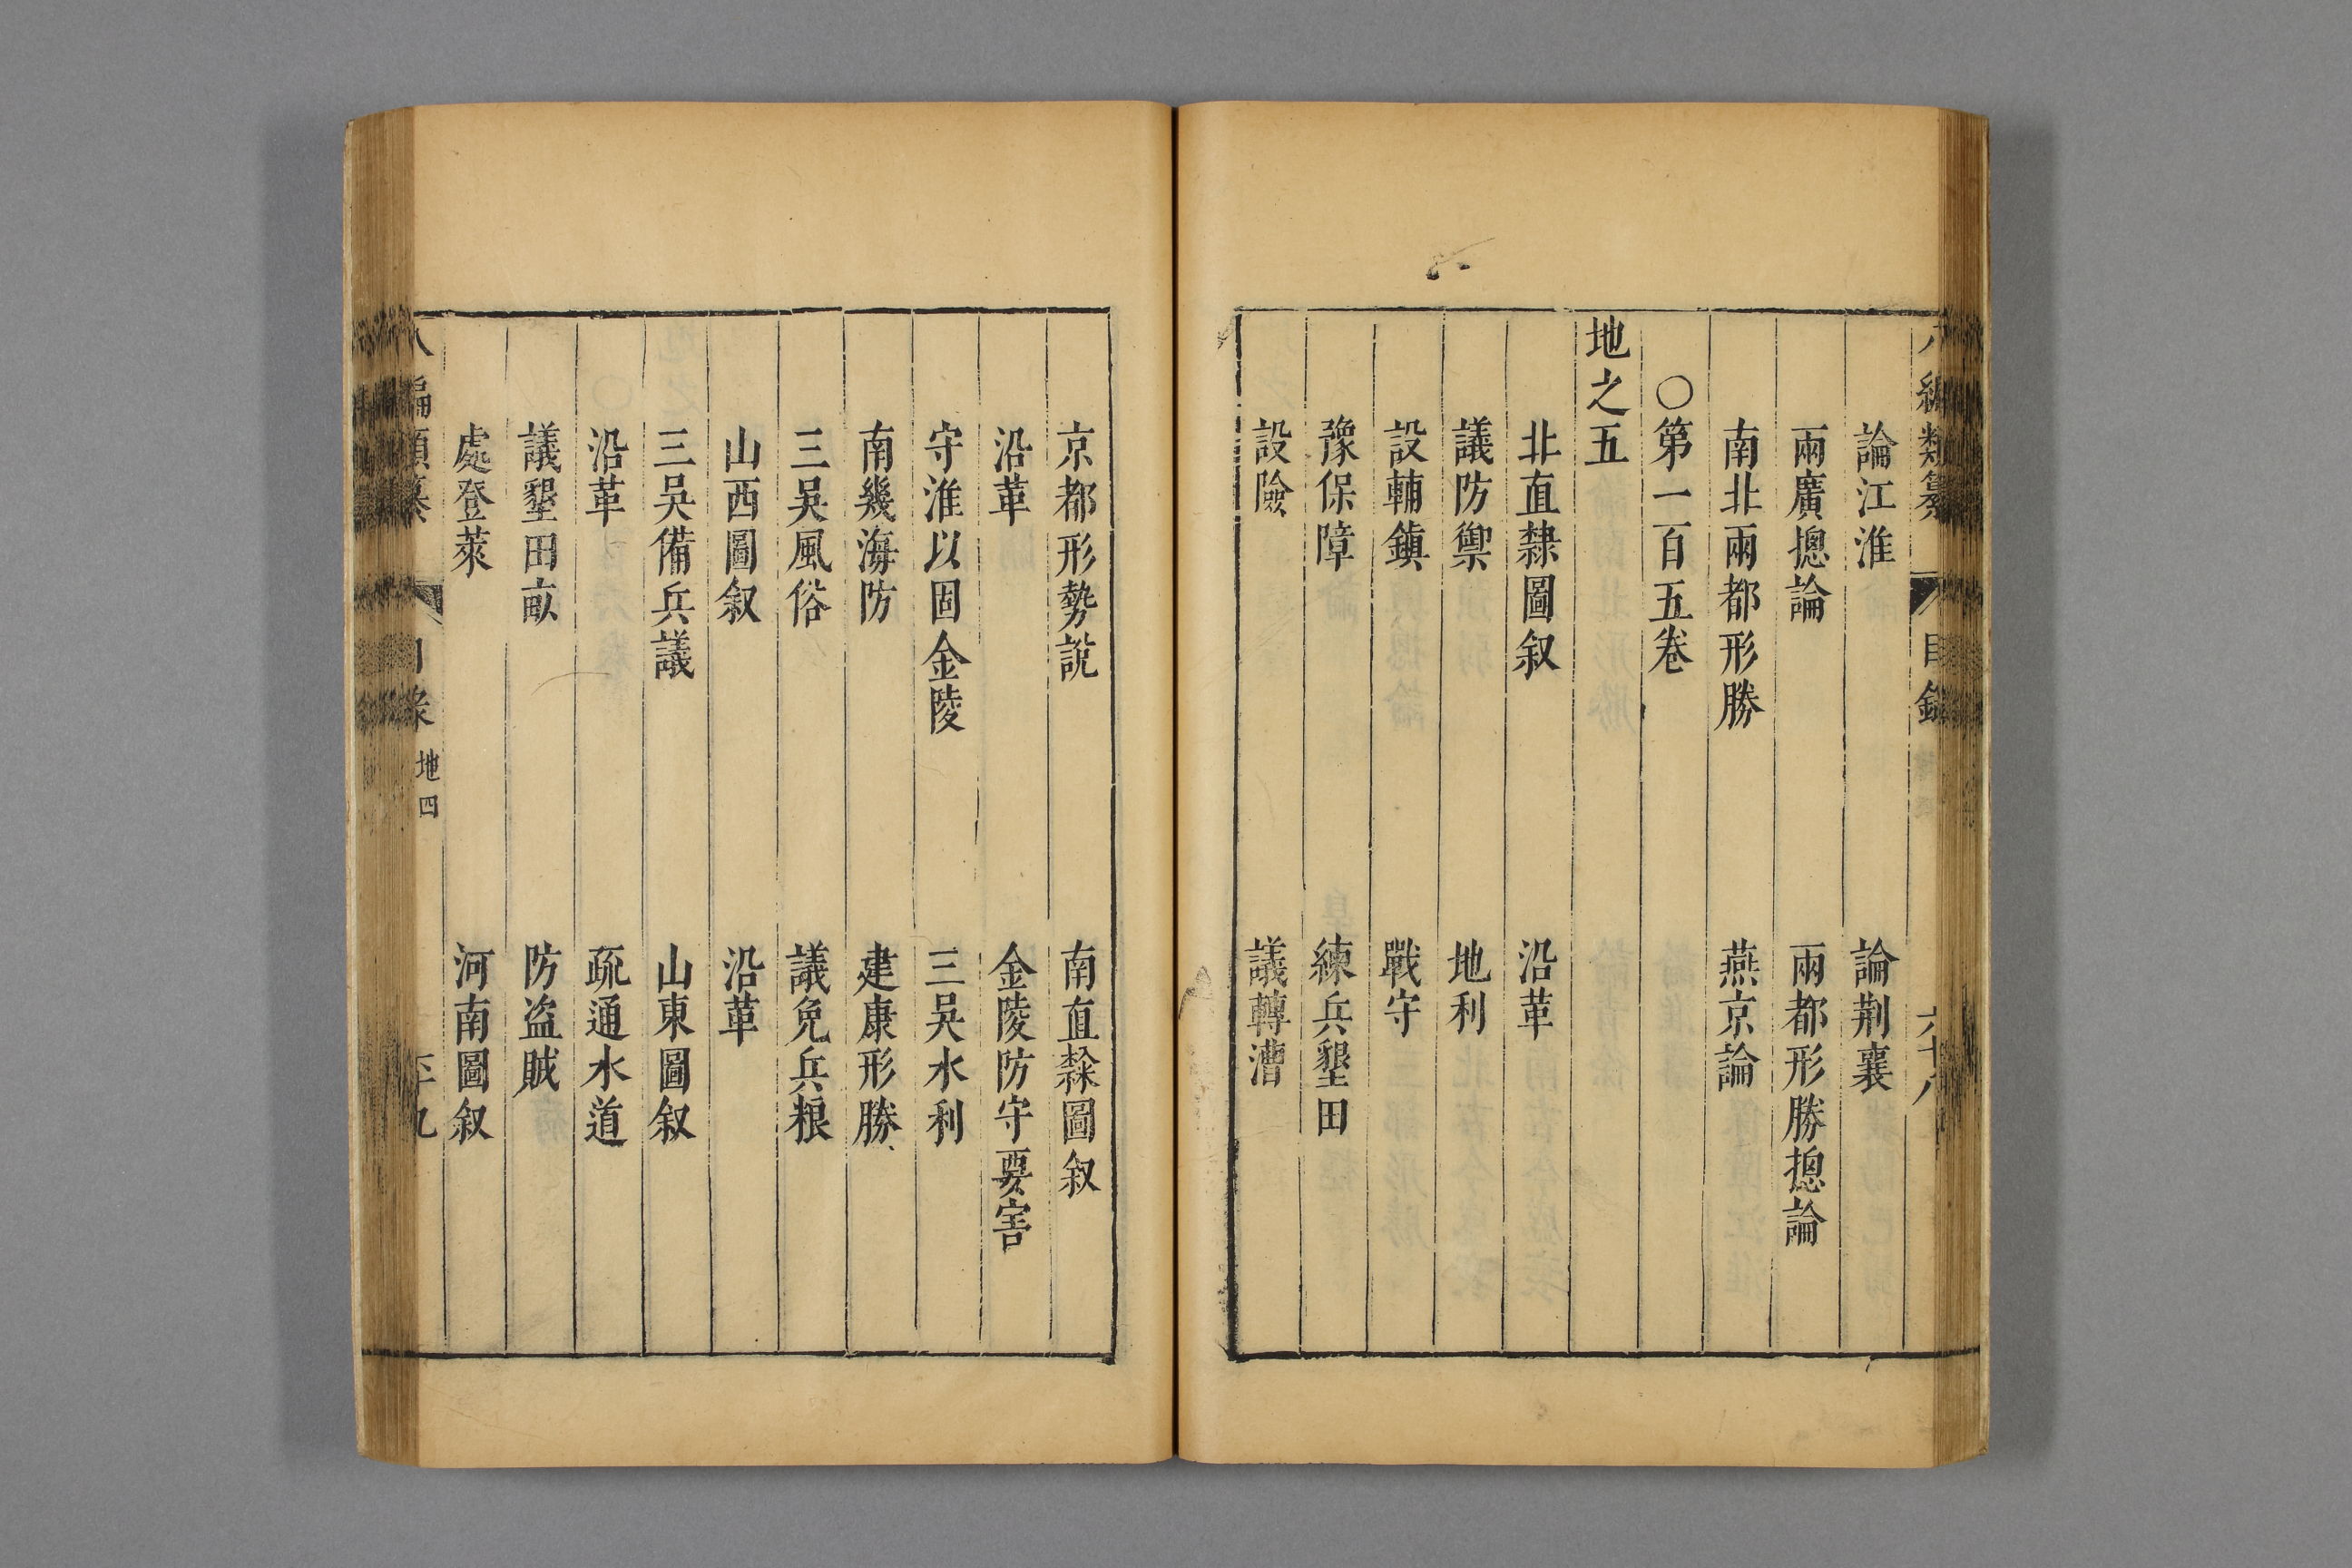 八編類纂 目錄 六十八
論江淮 論荆襄
兩廣摠論 兩都形勝摠論
南北兩都形勝 燕京論
○第一百五卷
地之五
北直隸圖叙 沿革
議防禦 地利
設輔鎮 戰守
豫保障 練兵墾田
設險 議轉漕
京都形勢說 南直隸圖叙
沿革 金陵防守要害
守淮以固金陵 三吳水利
南幾海防 建康形勝
三吳風俗 議免兵粮
山西圖叙 沿革
三吳備兵議 山東圖叙
沿革 疏通水道
議墾田畝 防盗賊
處登萊 河南圖叙
八編類纂 目錄 地四